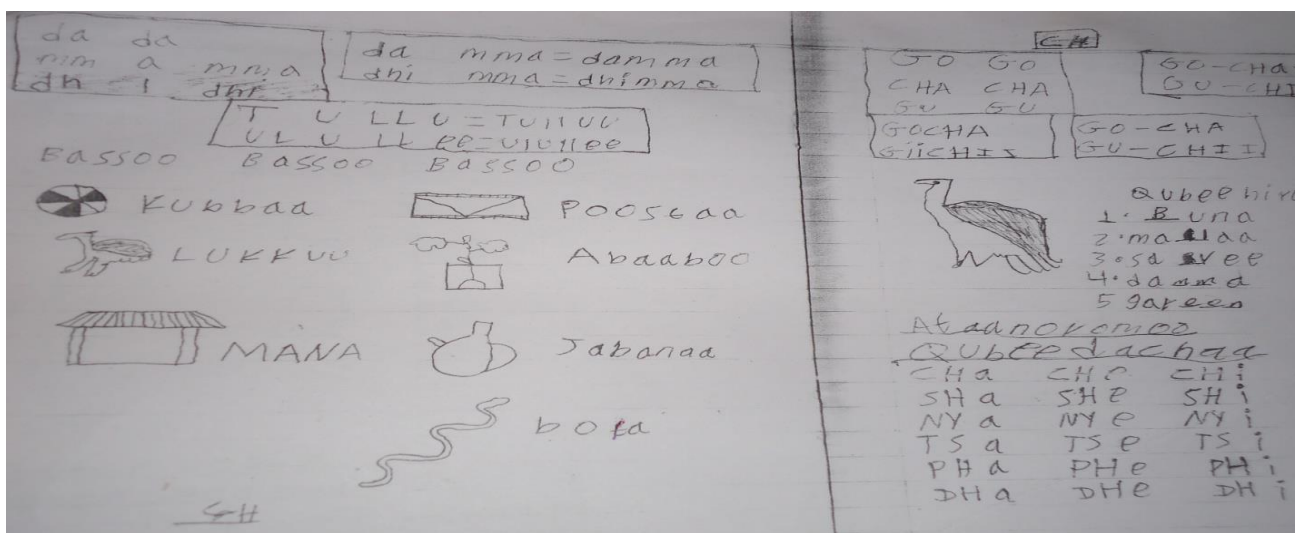 da da
mm a mma
dh i dhi
da mma = damma
dhi mma = dhimma
T U LLU = TUllUU
UL U LL ee = UlUllee
BASSOO BASSOO BASSOO
KUbbaa
POOSTaa
LUKKUU
Abaaboo
MANA
Jabanaa
bofa
SH
CH
GO GO
CHA CHA
GU GU
GO-CHa
GU-CHI
GOCHA
GiiCHIS
GO-CHA
GU-CHII
Qubee hir
1. Buna
2. mallaa
3. saree
4. damma
5 gareen
Afaanoromoo
QUbee dachaa
CHa CHe CHi
SHa SHe SHi
NYa NYe NYi
TSa TSe TSi
PHa PHe PHi
DHa DHe DHi